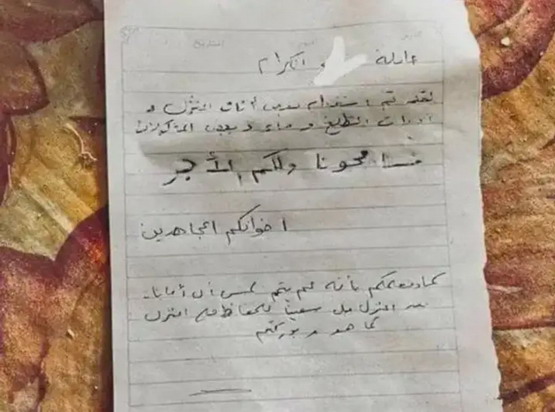 عائلة و الكرام
لقد تم استخدام بعض أثاث المنزل و
أدوات الطبخ و ماء و بعض المأكولات
فسامحونا ولكم الأجر
اخوانكم المجاهدين
كما نعلمكم بأنه لم يتم لمس أي أمانات
في المنزل بل سعينا للحفاظ على المنزل
كما هو و بوركتم